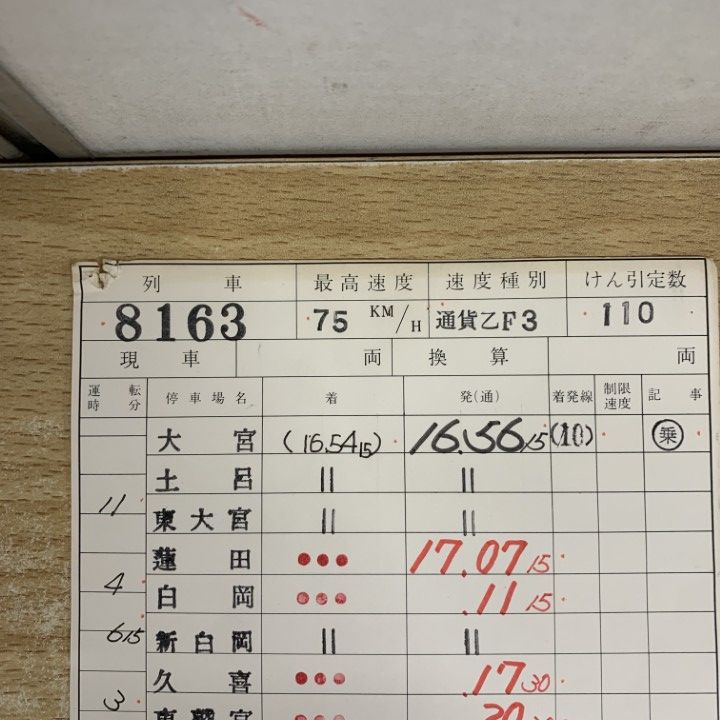 列 車 最高速度 速度種別 けん引定数
8163 75 KM/H 通貨乙F3 110
現 車 両 換 算 両
運転時分 停車場名 着 発(通) 着発線 制限速度 記 事
大 宮 (16.54 15) 16.56 15 (10) 乗
土 呂 || ||
11 東大宮 || ||
蓮 田 ••• 17.07 15
4 白 岡 ••• .11 15
6 15 新白岡 || ||
久 喜 ••• .17 30
3 東鷲宮 •••